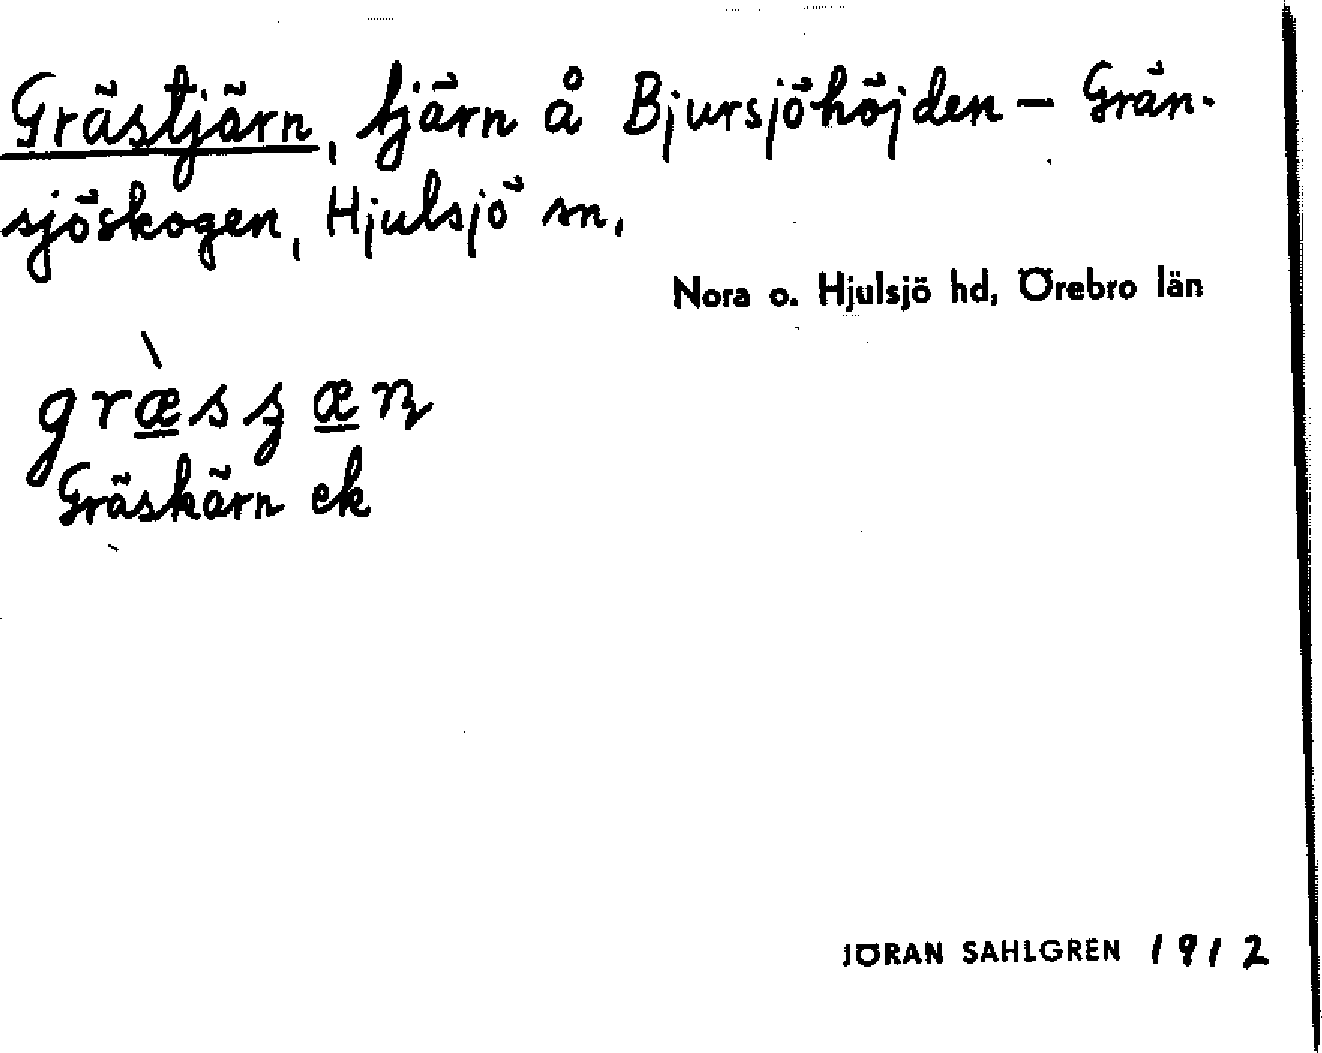 Grästjärn, tjärn å Bjursjöhöjden – Grän-
sjöskogen, Hjulsjö sn.
Nora o. Hjulsjö hd, Örebro län
Gräskärn ek
JÖRAN SAHLGREN 1912